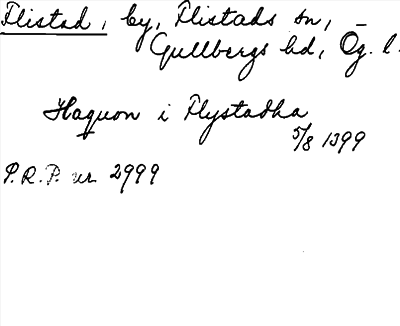 Flistad, by, Flistads sn,
Gullbergs hd, Ög. l.
Haquon i Flystadha
5/8 1399
P.R.P. nr 2999